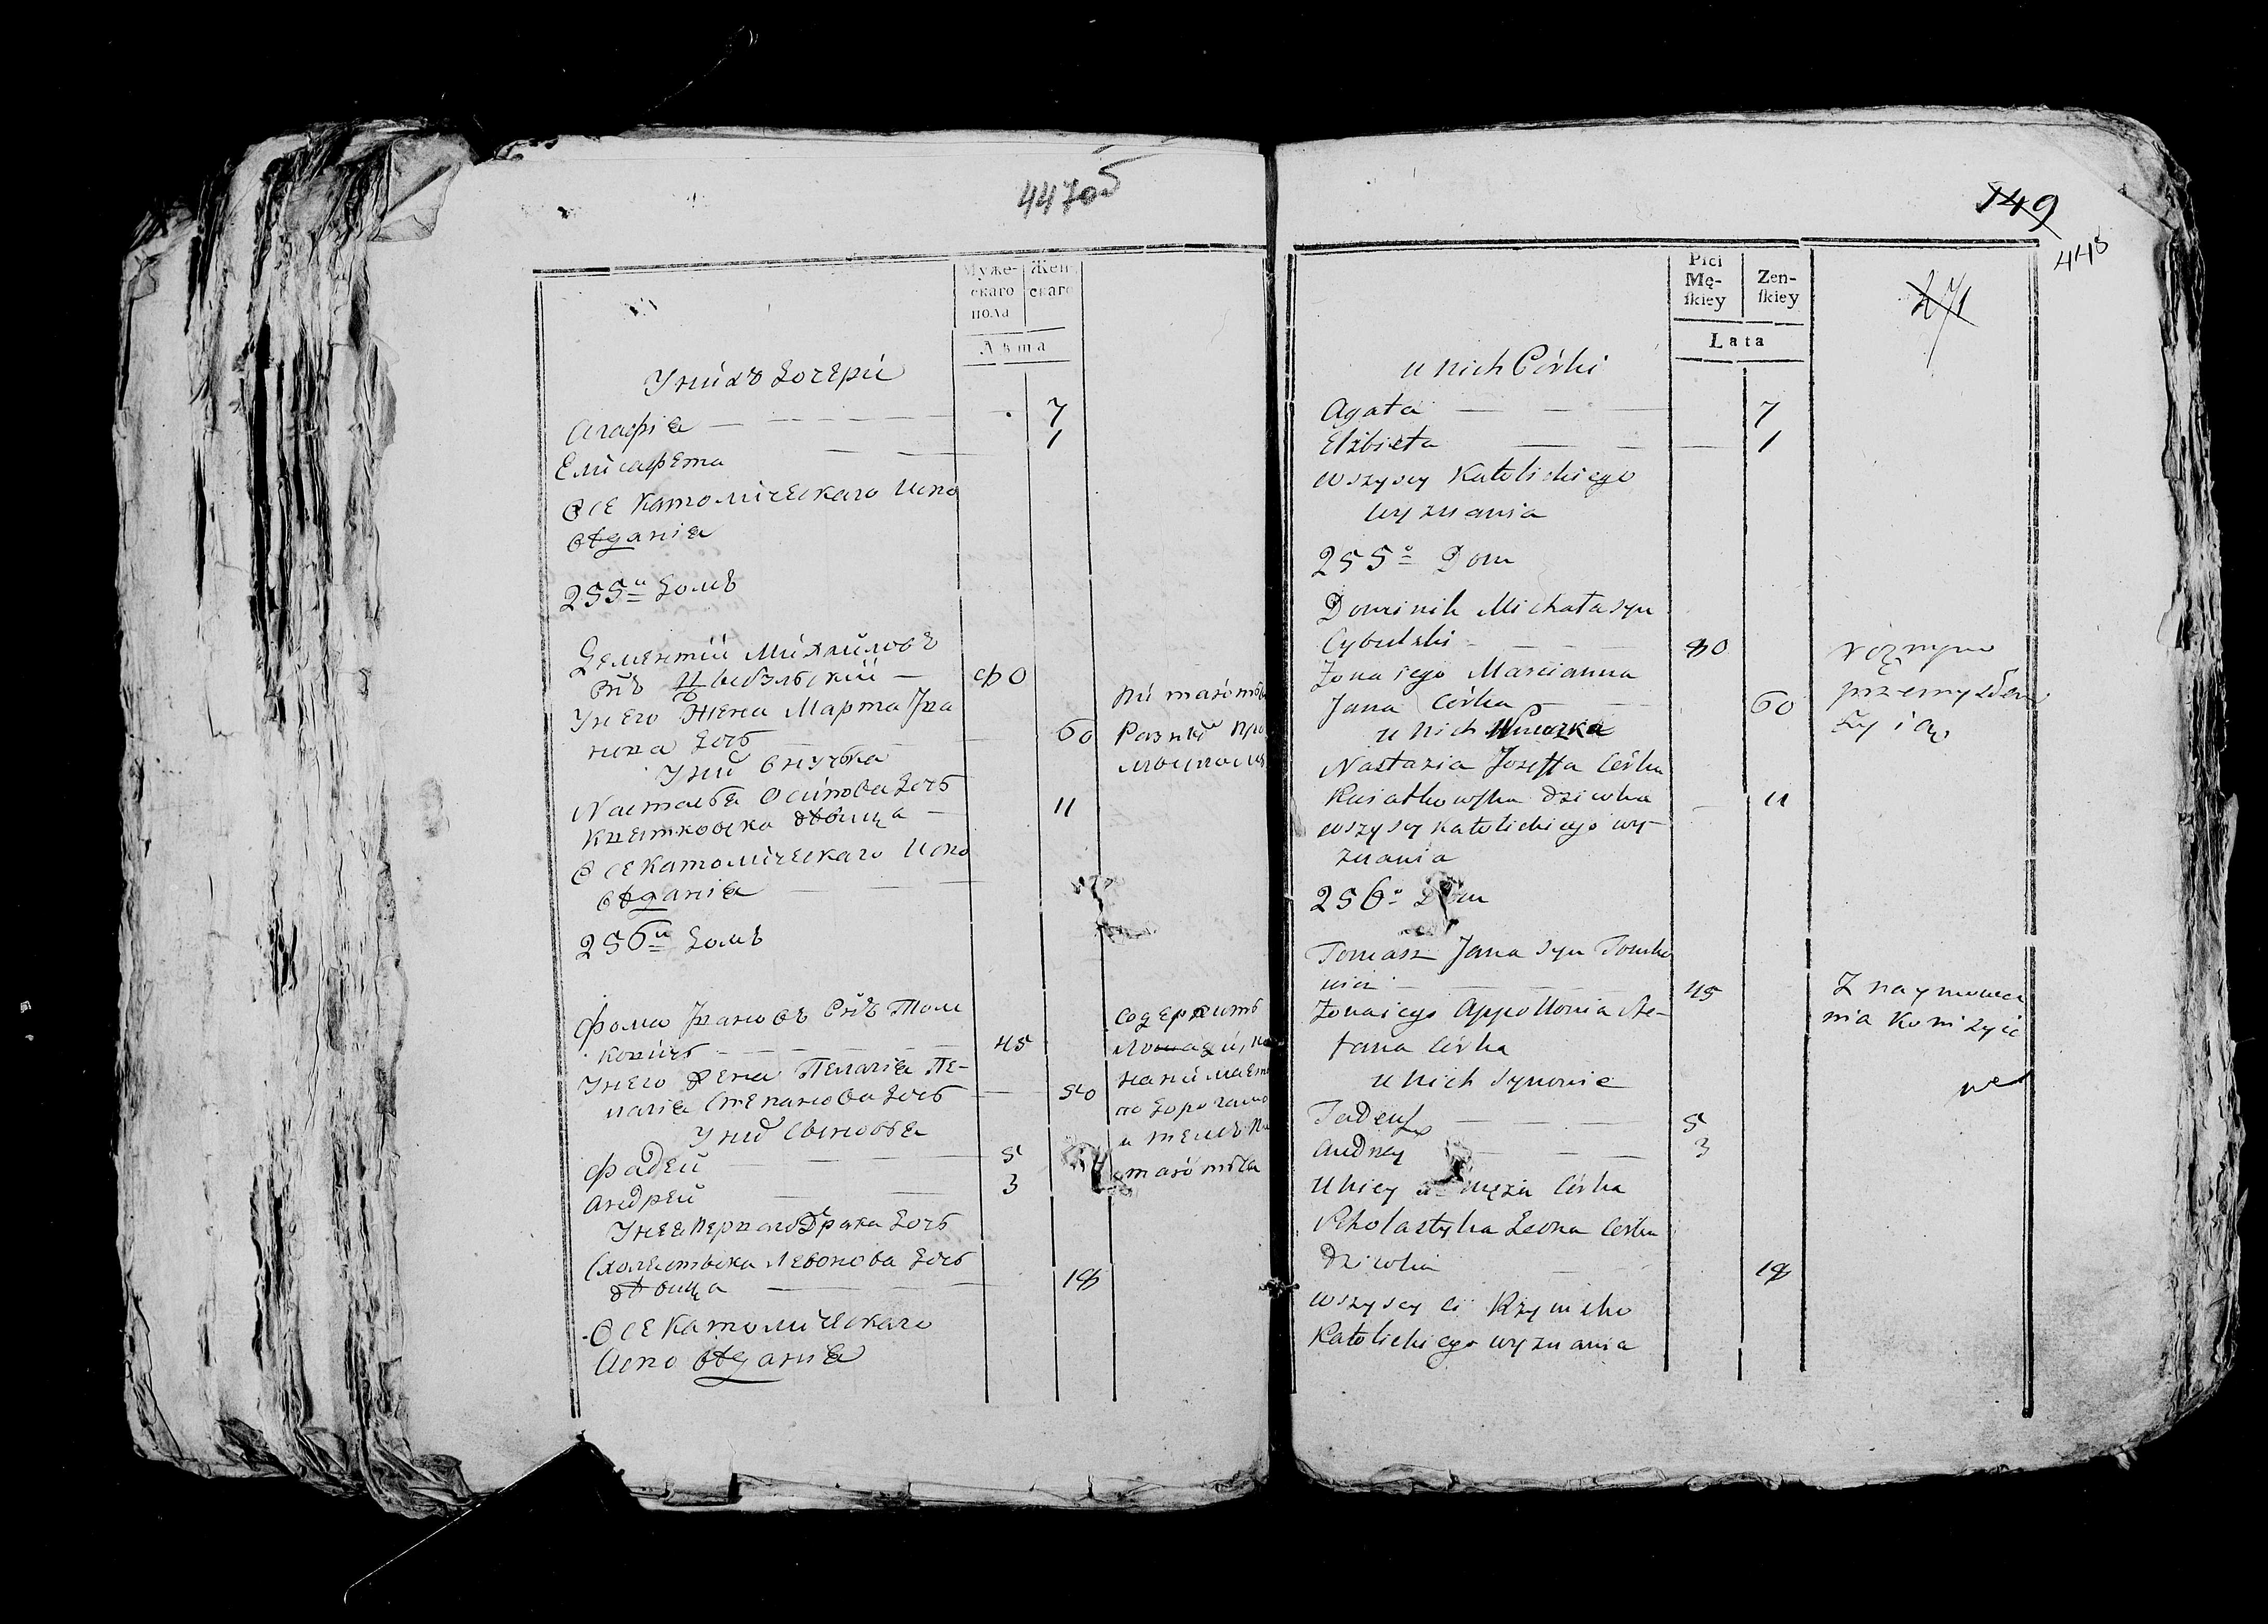 447об
Муже-
скаго
пола
Жен-
скаго
Лѣта
У нихъ дочери
Агафія — — — 7
Елисафета — — 1
Все католическаго испо
вѣданія
255й домъ
Дементій Михайловъ
снъ Цыбульскій — 80
У него жена Марта Ива
нова дочь — — 60
У нихъ внучка
Настасья Осипова дочь
Квятковска дѣвица — 11
Все католическаго испо
вѣданія — — —
256й домъ
Фома Ивановъ снъ Том
ковичь — — — 45
У него жена Пелагія Пе-
лагія Степанова дочь — 50
У нихъ сыновья
Фадей — — — 5
Андрей — — 3
У нее перваго брака дочь
Схоластыка Левонова дочь
дѣвица — — — 18
Все католическаго
исповѣданія
питаются
Разны про
мысломъ
содержитъ
лошади,
нанимаетъ
по дорогамъ
и темъ пи
тается
149
448
Płci
Mę-
ſkiey
Zen-
ſkiey
Lata
271
u nich Córki
Agata — — — 7
Elżbieta — — — 1
wszyscy Katolickiego
wyznania
255o Dom
Dominik Michała syn
Cybulski — — — 80
Żona iego Marcianna
Jana Córka — — 60
u nich Wnuczka
Nastazia Jozeffa Córka
Kwiatkowska dziewka — 11
wszyscy katolickiego wy-
znania
256o Dom
Tomasz Jana syn Tomko
wicz — — — 45
Żona iego Appollonia Ste-
fana Córka
u nich synowie
Tadeusz — — — 5
Andrzey — — 3
U niey męża Córka
Scholastyka Leona Córka
Dziewka — — 18
wszyscy ci Rzymsko
Katolickiego wyznania
róznym
przemysłem
żyią
Z naymowa
nia koni żyie